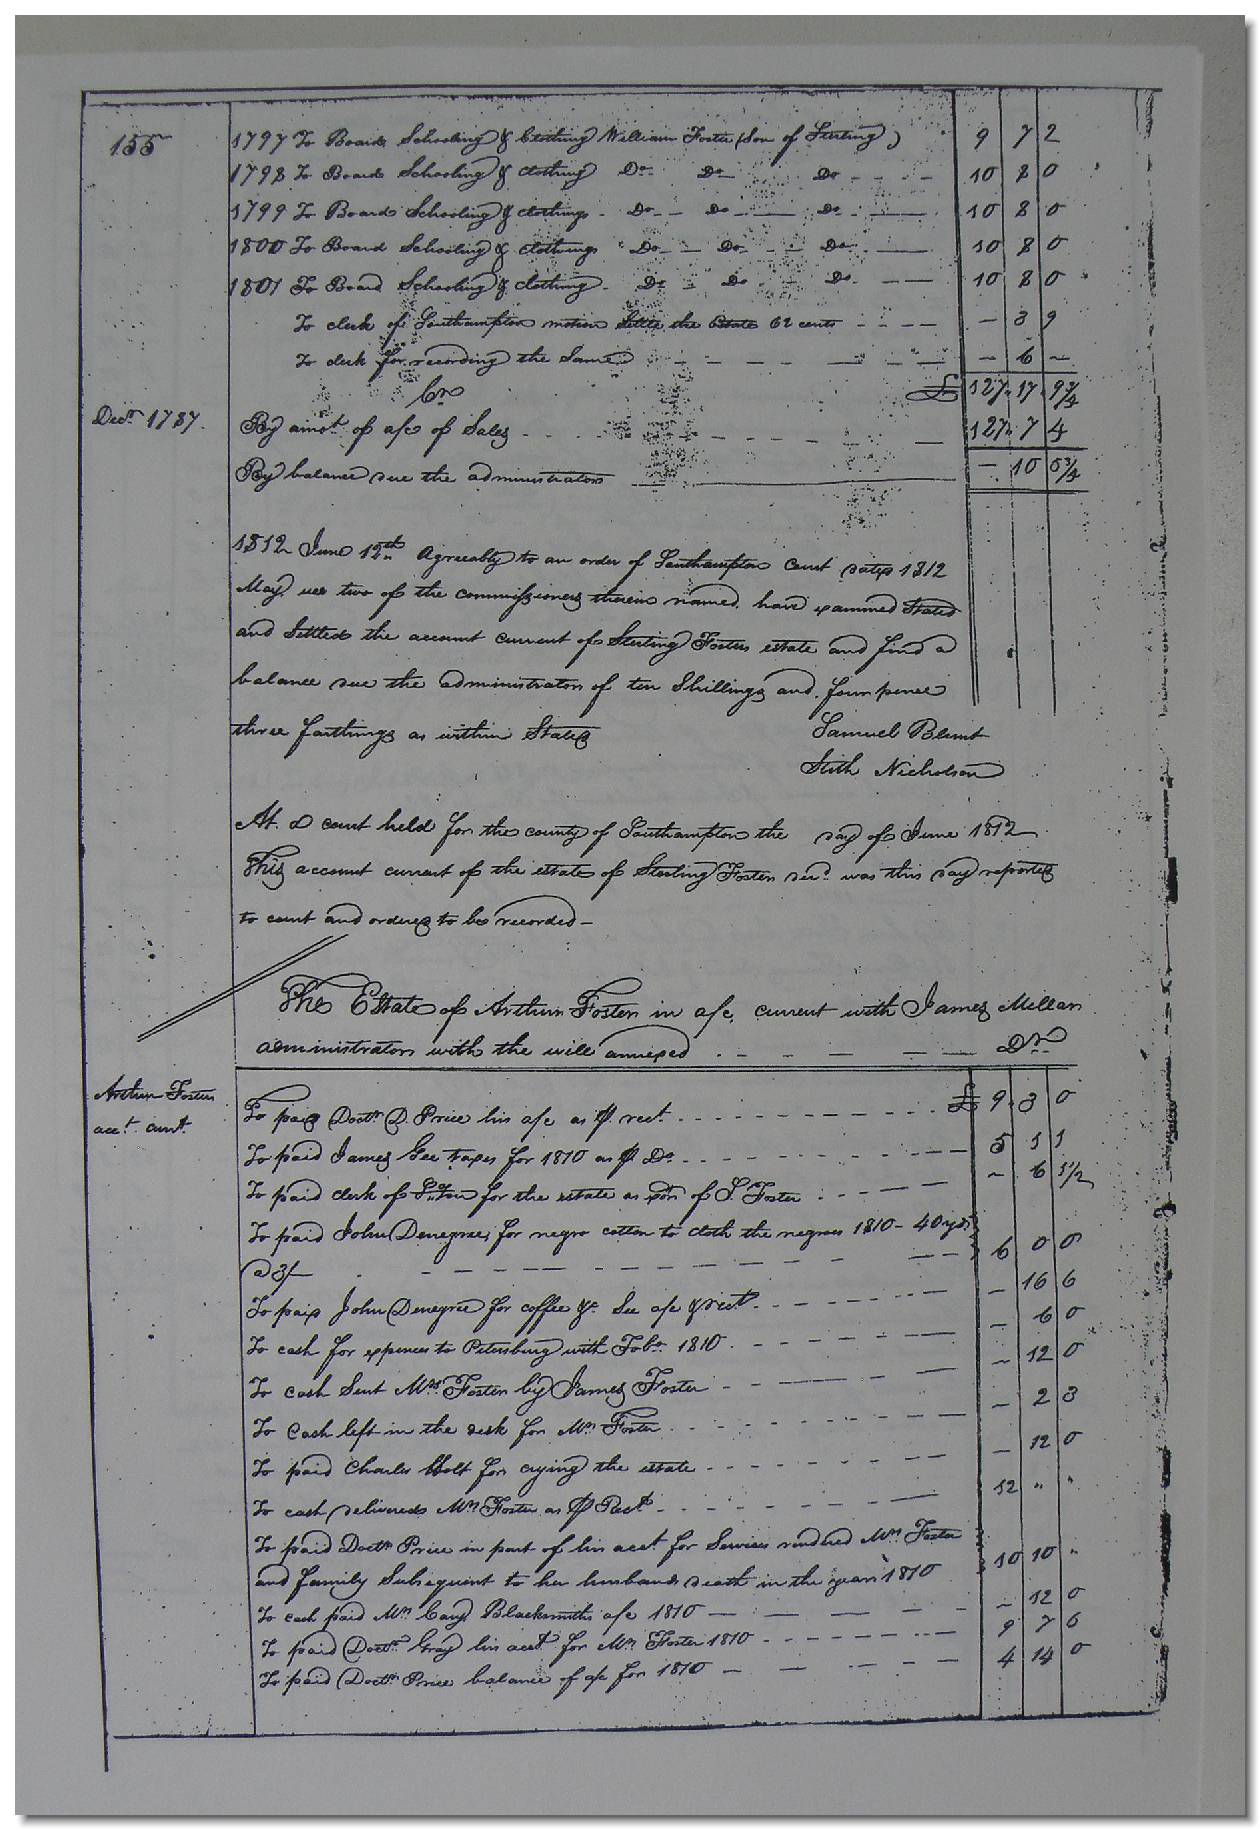 155
1797 To Board Schooling & Clothing William Foster (Son of Sterling) 9 7 2
1798 To Board Schooling & clothing Do Do Do 10 8 0
1799 To Board Schooling & clothing Do Do Do 10 8 0
1800 To Board Schooling & clothing Do Do Do 10 8 0
1801 To Board Schooling & clothing Do Do Do 10 8 0
To clerk of Southampton motion Settle the Estate 62 cents - 3 9
To clerk for recording the Same - 6 -
Cr £ 127 17 9 3/4
Decr 1787. By amot. of a/c of Sales 127 7 4
By balance due the administrator - 10 5 3/4
1812 June 12th Agreeably to an order of Southampton Court dated 1812
May we two of the commissioners therein named have examined Stated
and Settled the account current of Sterling Fosters estate and find a
balance due the administrator of ten Shillings and four pence
three farthings as within Stated
Samuel Blunt
Stith Nicholson
At a court held for the county of Southampton the day of June 1812
This account current of the estate of Sterling Foster decd. was this day reported
to court and ordered to be recorded -
The Estate of Arthur Foster in a/c. current with James Millar
administrator with the will annexed Dr.
Arthur Foster
acct. curt.
To paid Doctr D. Price his a/c as pr. rect. £ 9 3 0
To paid James Gee taxes for 1810 as pr Do 5 1 1
To paid clerk of for the estate as exor of S. Foster - 6 5 1/2
To paid John Denegree for negro cotton to cloth the negroes 1810 - 40 yds
a 3/- 6 0 0
To paid John Denegree for coffee &c. See a/c & rect. - 16 6
To cash for expences to Petersburg with Tobo. 1810 - 6 0
To cash Sent Mrs Foster by James Foster - 12 0
To Cash left in the desk for Mrs Foster - 2 3
To paid Charles Holt for crying the estate - 12 0
To cash delivered Mrs Foster as pr Rect 12 " "
To paid Doctr Price in part of his acct for Services rendered Mrs Foster
and family Subsequent to her husbands death in the year 1810 10 10 "
To cash paid Mr Blacksmiths a/c 1810 - 12 0
To paid Doctr. Gray his acct for Mrs Foster 1810 9 7 6
To paid Doctr Price balance of a/c for 1810 4 14 0